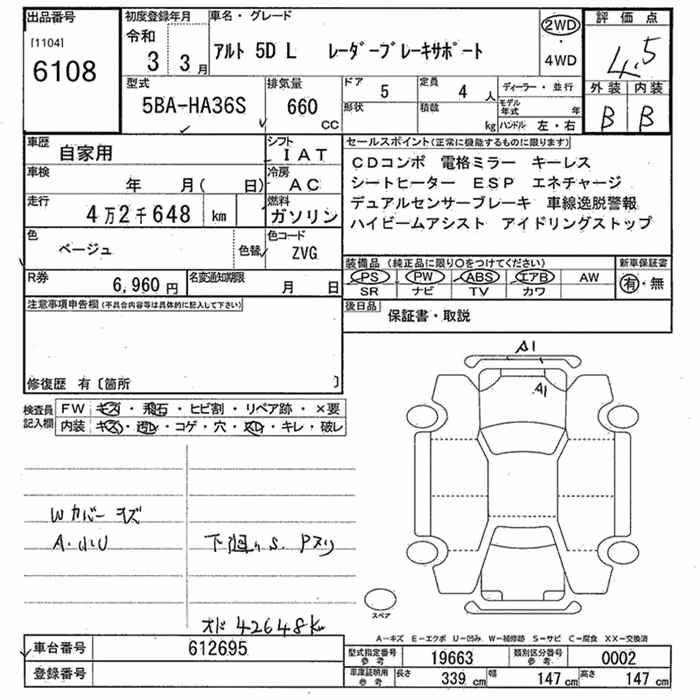 出品番号
[1104]
6108
初度登録年月
令和
3 3月
車名・グレード
アルト 5D L レーダーブレーキサポート
2WD
・
4WD
評価点
4.5
外装 内装
B B
型式
5BA-HA36S
排気量
660
CC
ドア
5
定員
4 人
形状
積載
kg
ディーラー・並行
モデル年式 年
ハンドル 左・右
車歴
自家用
シフト
IAT
車検
年 月( 日)
冷房
AC
走行
4万2千648 km
燃料
ガソリン
色
ベージュ
色替
色コード
ZVG
R券
6,960円
名変通知期限
月 日
セールスポイント(正常に機能するものに限ります)
CDコンポ 電格ミラー キーレス
シートヒーター ESP エネチャージ
デュアルセンサーブレーキ 車線逸脱警報
ハイビームアシスト アイドリングストップ
装備品(純正品に限り○をつけてください)
PS PW ABS エアB AW
SR ナビ TV カワ
新車保証書
有・無
後日品
保証書・取説
注意事項申告欄(不具合内容等は具体的に記入して下さい)
修復歴 有〔箇所 〕
検査員
記入欄
FW キズ・飛石・ヒビ割・リペア跡・×要
内装 キズ・汚レ・コゲ・穴・スレ・キレ・破レ
Wカバーキズ
A・小U
下廻りS. Pヌリ
オド 42648Km
A1
A1
スペア
A-キズ E-エクボ U-凹み W-補修跡 S-サビ C-腐食 XX-交換済
車台番号
612695
登録番号
型式指定番号
参考
19663
類別区分番号
参考
0002
車庫証明用
参考
長さ 339 cm 幅 147 cm 高さ 147 cm